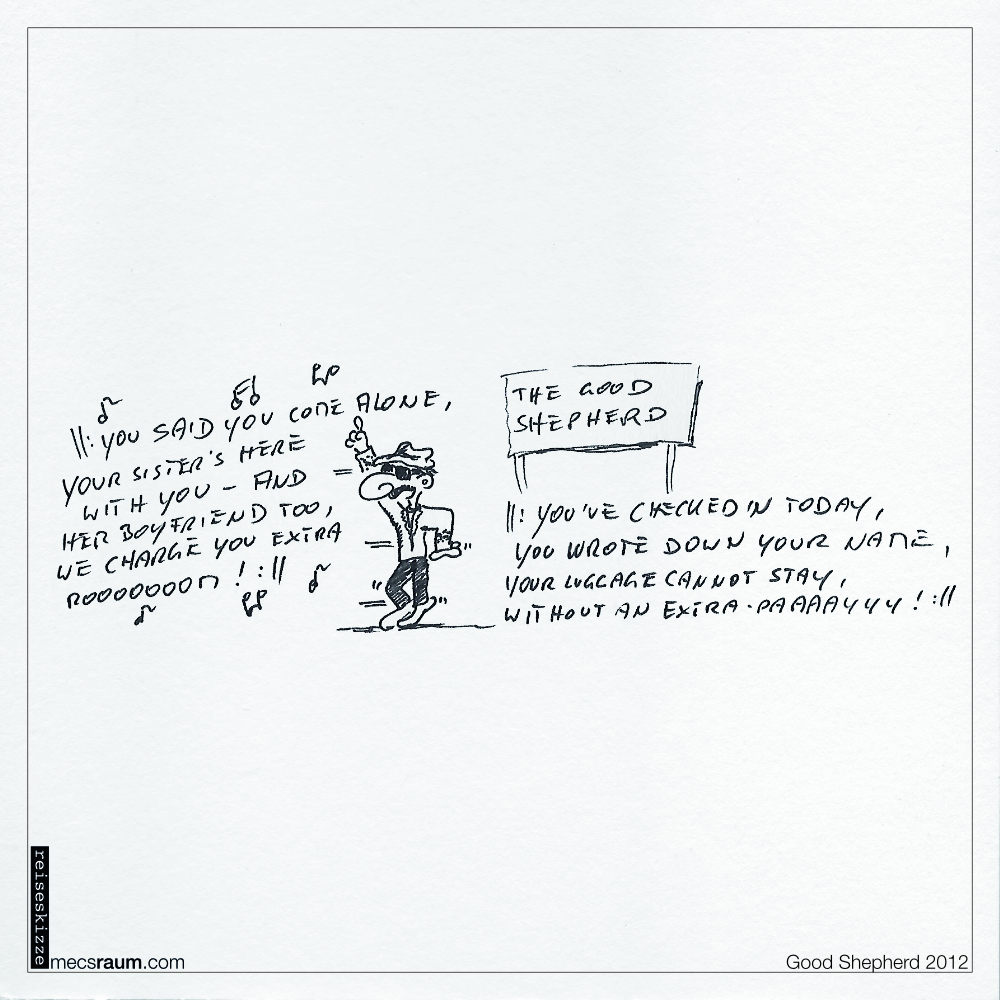 ||: YOU SAID YOU COME ALONE,
YOUR SISTER'S HERE
WITH YOU – AND
HER BOYFRIEND TOO,
WE CHARGE YOU EXTRA
ROOOOOOOM ! :||
THE GOOD
SHEPHERD
||: YOU'VE CHECKED IN TODAY,
YOU WROTE DOWN YOUR NAME,
YOUR LUGGAGE CANNOT STAY,
WITHOUT AN EXTRA-PAAAAYYY ! :||
reiseskizze
mecsraum.com
Good Shepherd 2012